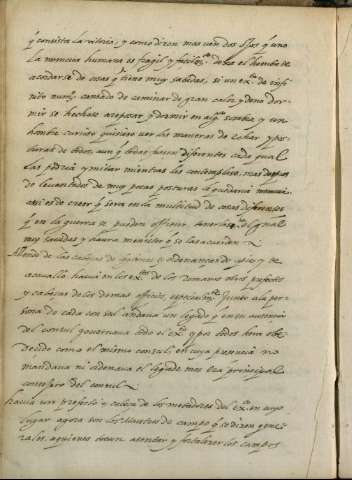 q̃ consista la vitoria, y como dizen mas ven dos ojos q̃ uno
la memoria humana es fragil y facilm.te dexa el hombre de
acordarse de cosas q̃ tiene muy sabidas, si un ex.to de infi-
nito num.o cansado de caminar de gran calor y deno dor-
mir se hechase areposar y dormir en alg.a sombra y un
hombre curioso quisiese ver las maneras de echar y pos-
turas de todos, aun q̃ todas fuesen diferentes cada qual
las podria y mirar mientras las contemplase, mas despues
de levantados de muy pocas posturas le quedaria memoria
asi es de creer q̃ sera en la multitud de cosas diferentes
q̃ en la guerra se pueden ofrecer tener el general
muy sauidas y aura menester q̃ se las acuerden
Allende de las cabeças de legiones se ordenanças de pie y de
acauallo hauia en los ex.tos de los Romanos otros prefectos
y cabeças de los demas oficios, especialm.te Junto ala per-
sona de cada con sul andaua un legado q̃ en su ausencia
del consul gouernaua todo el ex.to a quien todos heran obe-
deçido como el mismo consul, en cuya presencia no
mandaua ni ordenaua el legado mas era principal
consejero del consul
hauia un prefecto y cabeça de los metadores del ex.to en cuyo
lugar agora son los Maestros de campo q̃ se dizen gene-
rales, aquienes tocan asentar y fortalezer los campos